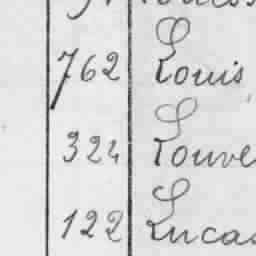 762 Louis,
324 Louve
122 Lucas